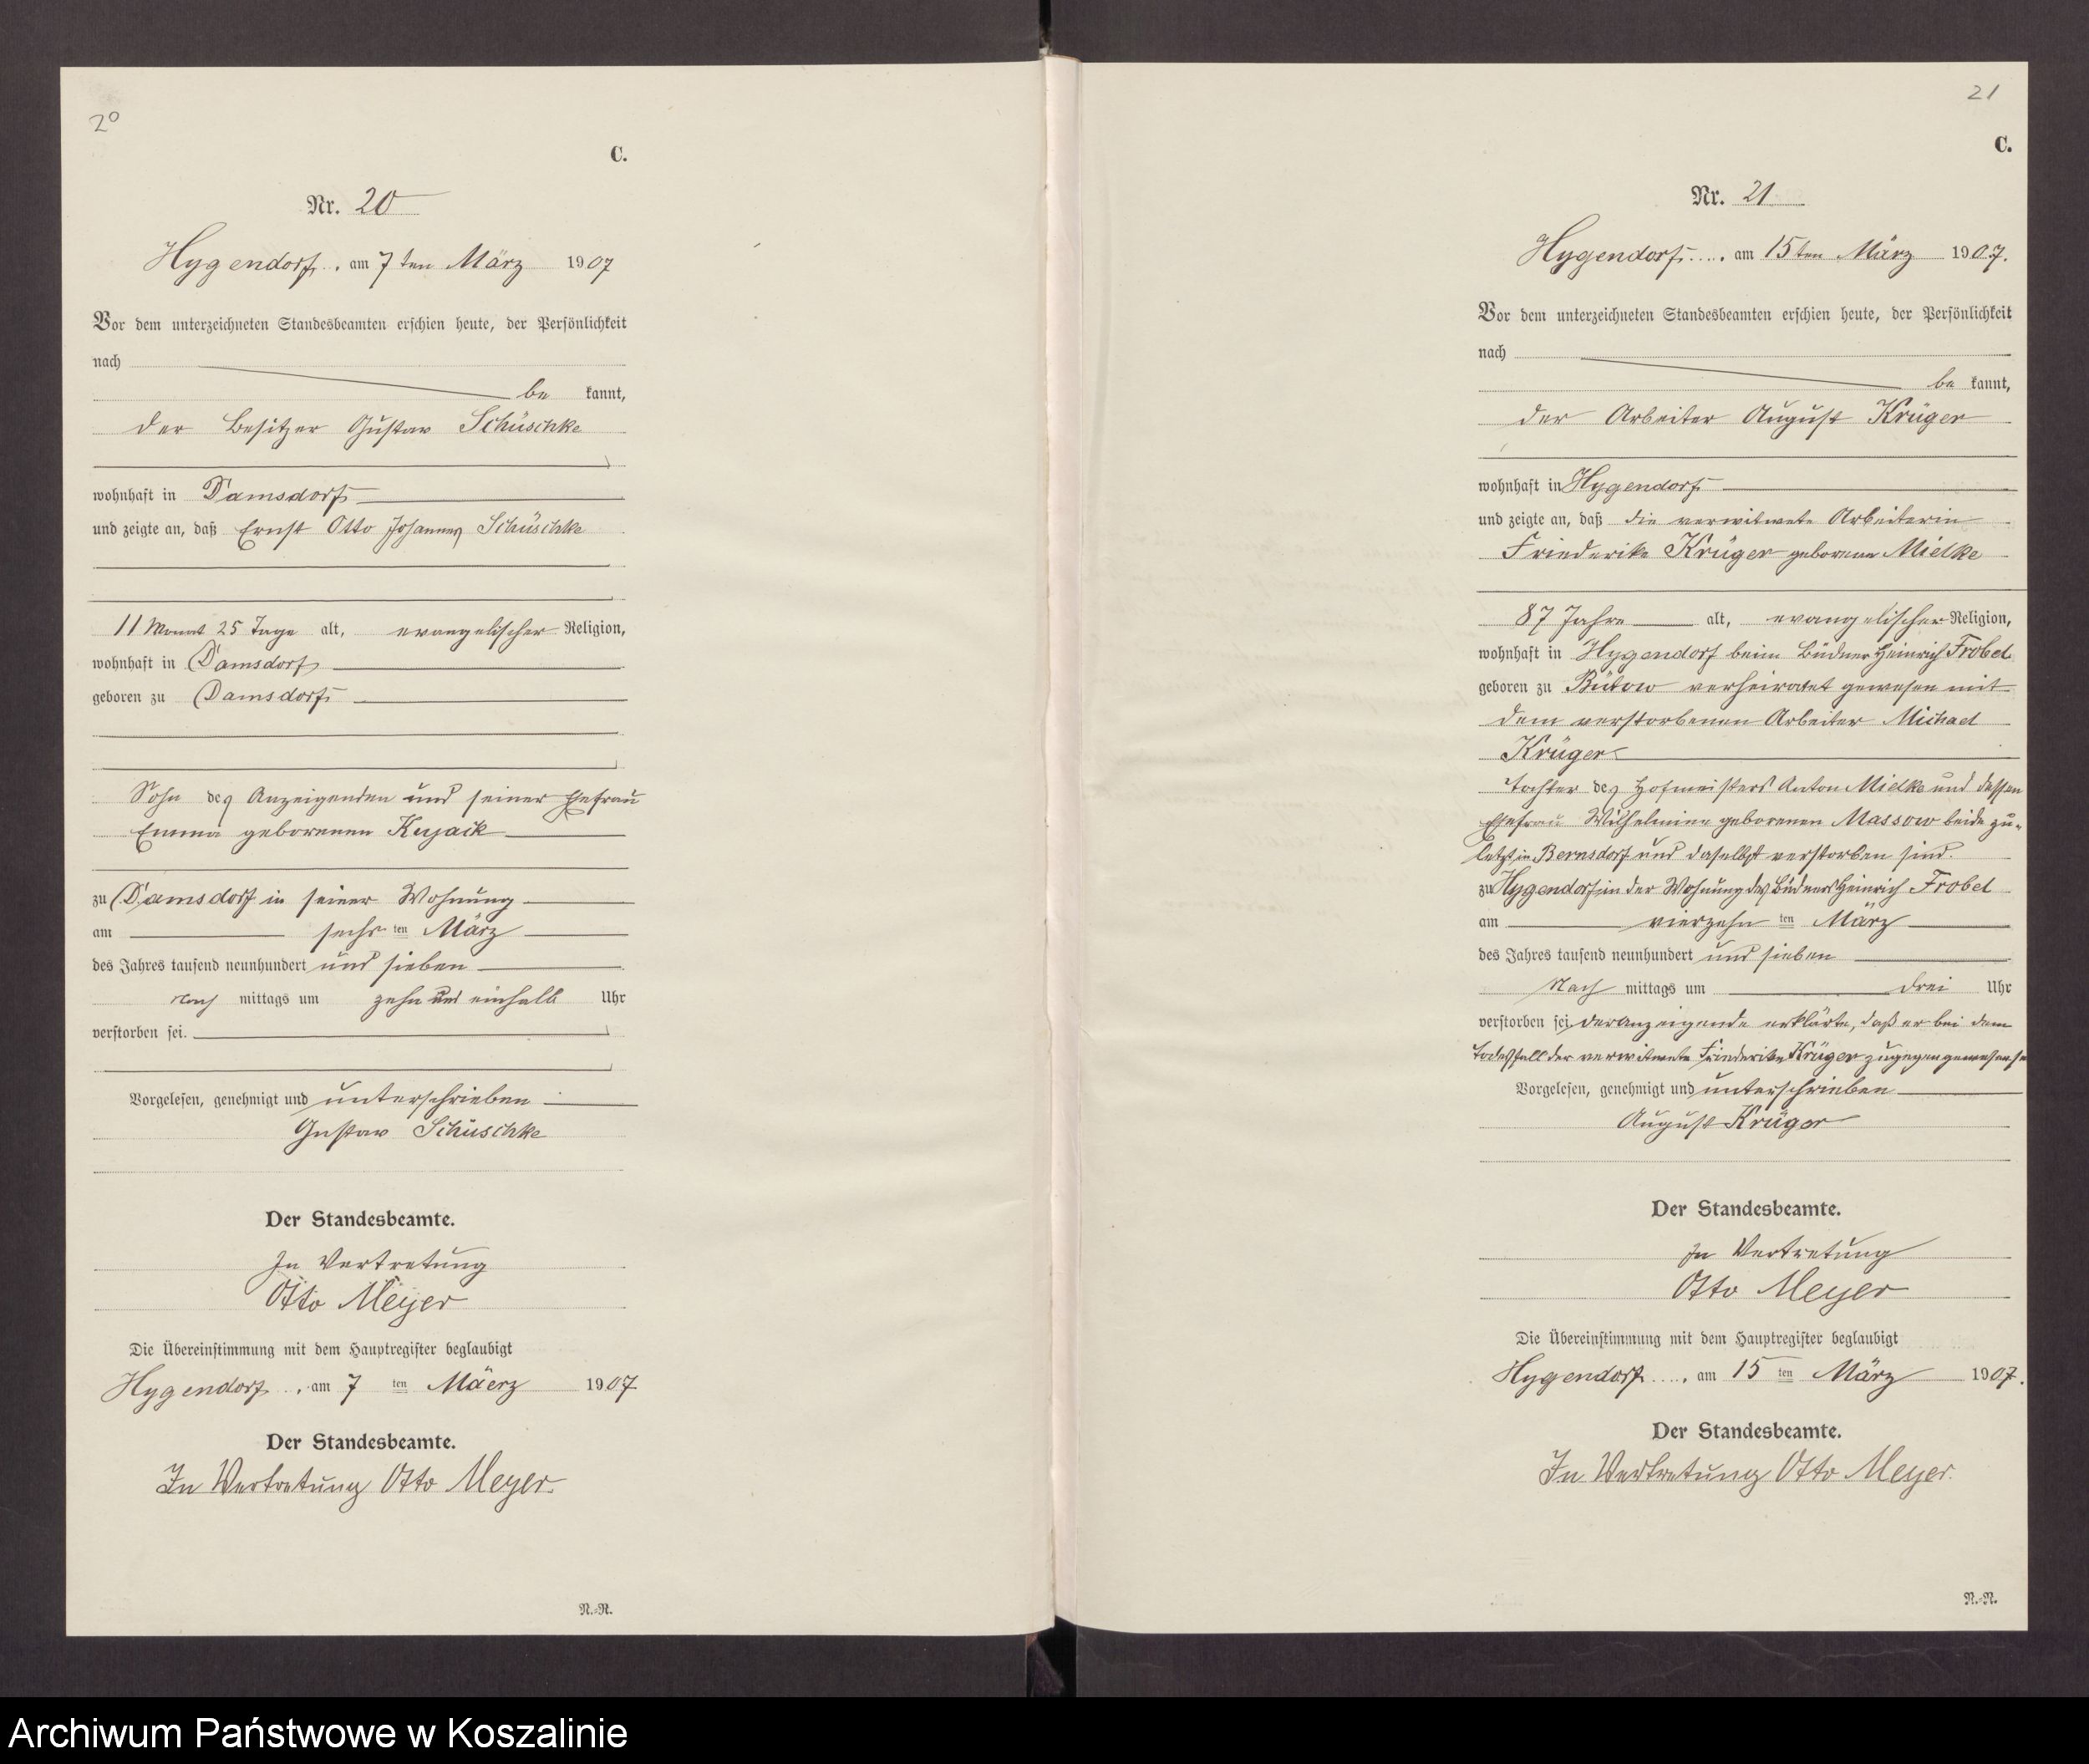 20
C.
Nr. 20
Hygendorf, am 7ten März 1907
Vor dem unterzeichneten Standesbeamten erschien heute, der Persönlichkeit
nach
be kannt,
der Besitzer Gustav Schüschke
wohnhaft in Damsdorf
und zeigte an, daß Ernst Otto Johannes Schüschke
11 Monat 25 Tage alt, evangelischer Religion,
wohnhaft in Damsdorf
geboren zu Damsdorf
Sohn des Anzeigenden und seiner Ehefrau
Emma geborenen Kujack
zu Damsdorf in seiner Wohnung
am sechs ten März
des Jahres tausend neunhundert und sieben
Nach mittags um zehn und einhalb Uhr
verstorben sei.
Vorgelesen, genehmigt und unterschrieben
Gustav Schüschke
Der Standesbeamte.
In Vertretung
Otto Meyer
Die Übereinstimmung mit dem Hauptregister beglaubigt
Hygendorf, am 7 ten Mäerz 1907.
Der Standesbeamte.
In Vertretung Otto Meyer.
N.-N.
21
C.
Nr. 21
Hygendorf, am 15ten März 1907.
Vor dem unterzeichneten Standesbeamten erschien heute, der Persönlichkeit
nach
be kannt,
der Arbeiter August Krüger
wohnhaft in Hygendorf
und zeigte an, daß die verwitwete Arbeiterin
Friederike Krüger geborene Mielke
87 Jahre alt, evangelischer Religion,
wohnhaft in Hygendorf beim Büdner Heinrich Frobel
geboren zu Bütow verheiratet gewesen mit
dem verstorbenen Arbeiter Michael
Krüger
Tochter des Hofmeisters Anton Mielke und dessen
Ehefrau Wilhelmine geborenen Massow beide zu-
letzt in Bernsdorf und daselbst verstorben sind.
zu Hygendorf in der Wohnung des Büdners Heinrich Frobel
am vierzehn ten März
des Jahres tausend neunhundert und sieben
Nach mittags um drei Uhr
verstorben sei, der anzeigende erklärte, daß er bei dem
Todesfall der verwitwete Friederike Krüger zugegen gewesen se
Vorgelesen, genehmigt und unterschrieben
August Krüger
Der Standesbeamte.
In Vertretung
Otto Meyer
Die Übereinstimmung mit dem Hauptregister beglaubigt
Hygendorf, am 15 ten März 1907.
Der Standesbeamte.
In Vertretung Otto Meyer.
N.-N.
Archiwum Państwowe w Koszalinie